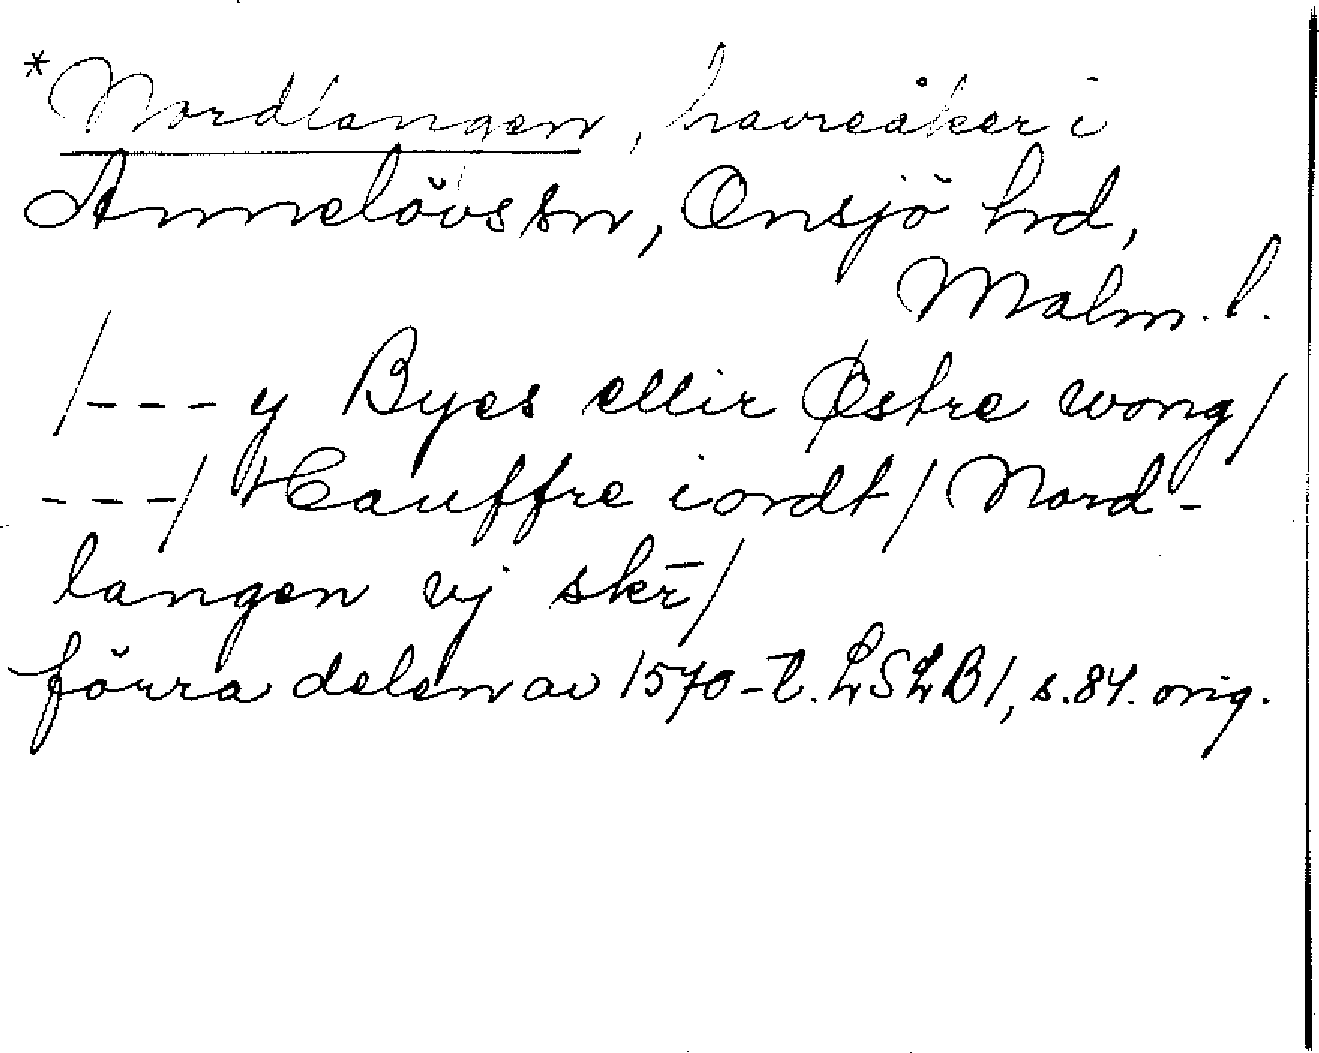 *Nordlangen, havreåker i
Annelövs sn, Onsjö hd,
Malm. l.
/--- y Byes ellir Østre wong/
---/ Hauffre iordt/ Nord-
langen vj skr̄/
förra delen av 1570-t. LSLB1, s.84. orig.